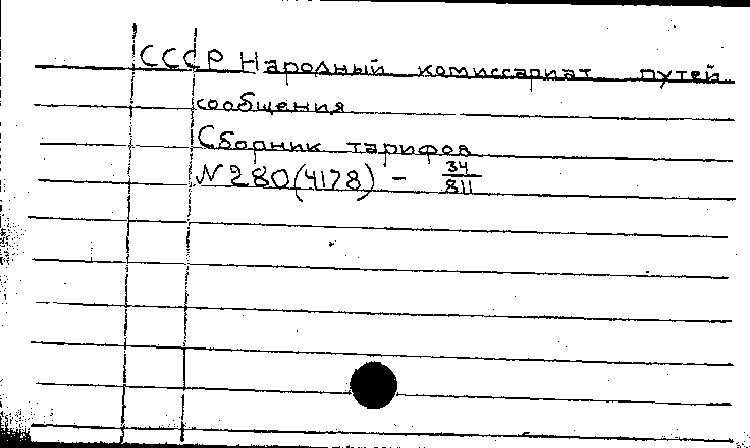 СССР Народный комиссариат путей
сообщения
Сборник тарифов
N 280(4178) - 34/811